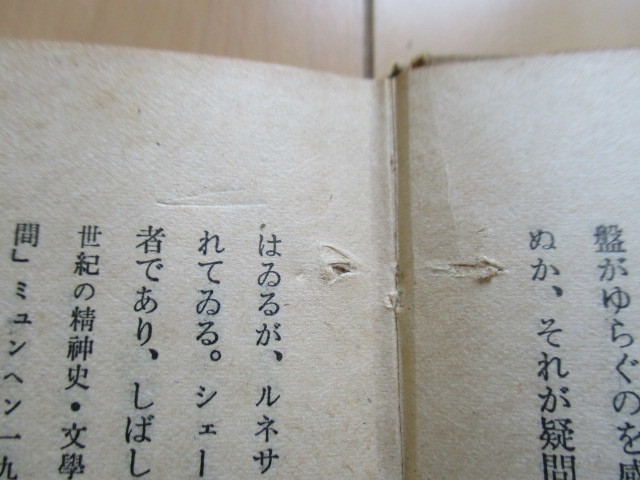 盤がゆらぐのを感
ぬか、それが疑問
はゐるが、ルネサ
れてゐる。シェー
者であり、しばし
世紀の精神史・文學
間」ミュンヘン一九